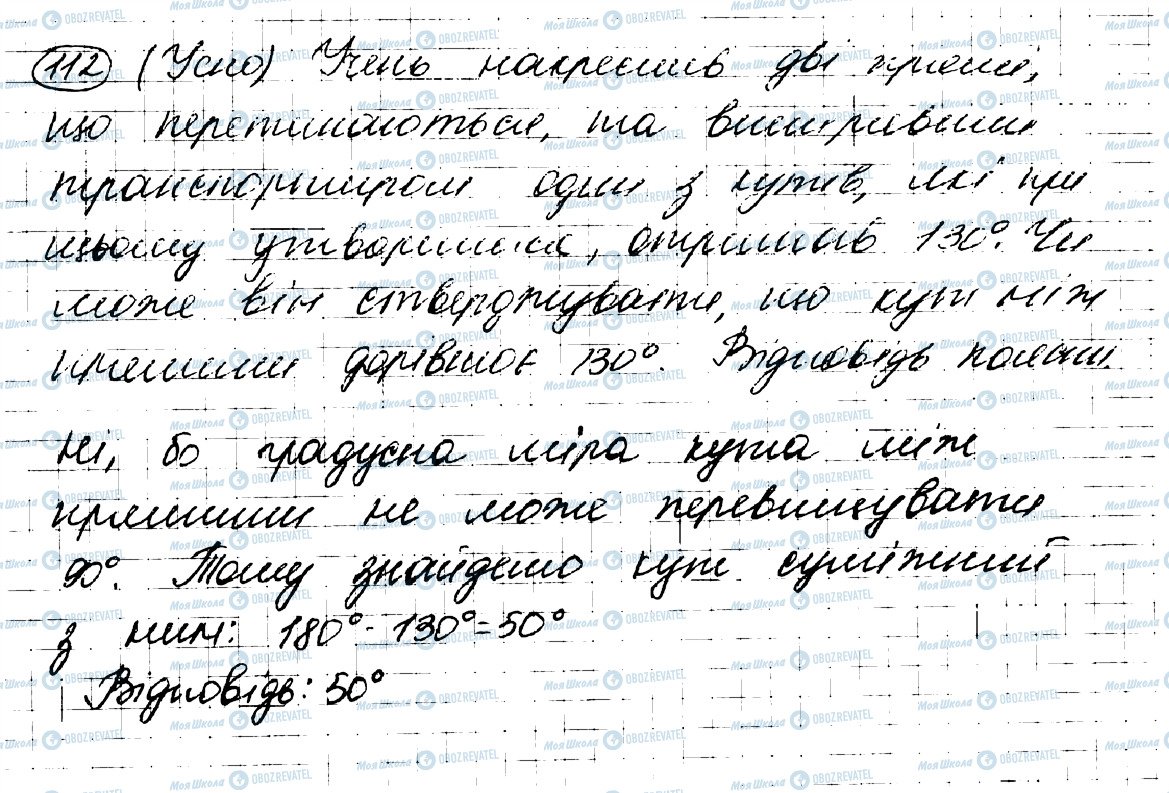 112 (Усно) Учень накреслив дві прямі,
що перетинаються, та вимірявши
транспортиром один з кутів, які при
цьому утворилися, отримав 130°. Чи
може він стверджувати, що кут між
прямими дорівнює 130°. Відповідь поясни.
Ні, бо градусна міра кута між
прямими не може перевищувати
90°. Тому знайдемо кут суміжний
з ним: 180°-130°=50°
Відповідь: 50°